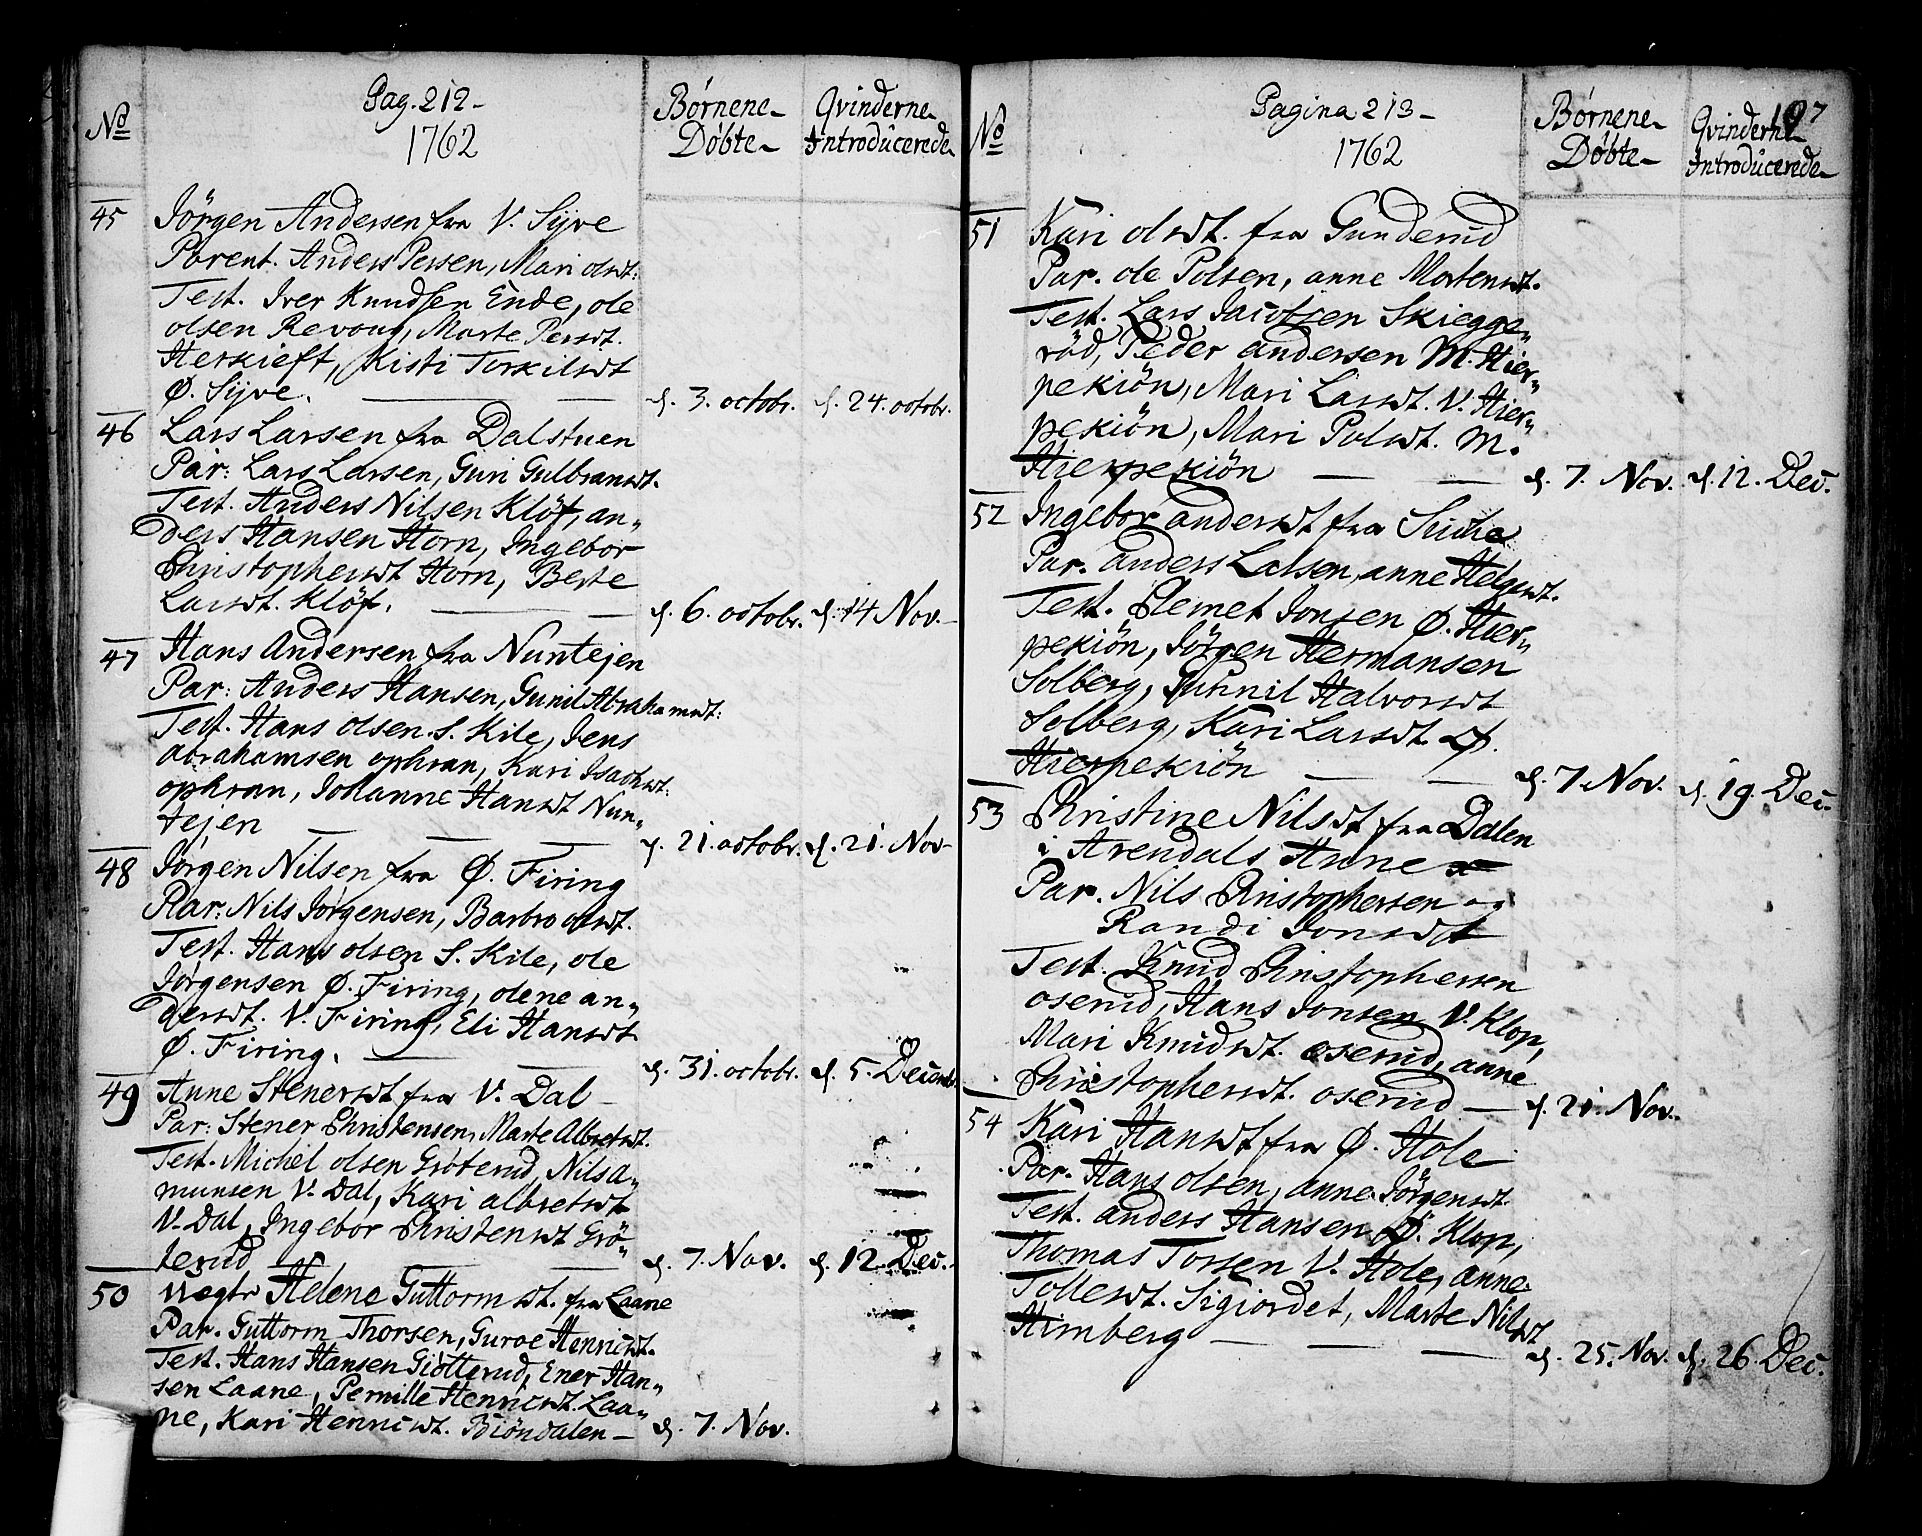 Pag. 212 -
1762
No
Børnene
Døbte
Qvinderne
Introducerede
45 Jörgen Andersen fra V. Sÿve
Parent. Anders Persen, Mari olsdt:
Test. Iver Knudsen Ende, ole
olsen Revoug, Marte Persdt.
Herkieft, Kisti Torkilsdt
Ø. Sÿve. d. 3. octobr. d. 24. octobr.
46 Lars Larsen fra Dalstuen
Par: Lars Larsen, Guri Gulbransdt.
Test. Anders Nilsen Klöf, an-
ders Hansen Horn, Ingebor
Christophersdt Horn, Berte
Larsdt. Klöf. d. 6. octobr. d. 14 Nov.
47 Hans Andersen fra Nuntejen
Par: Anders Hansen, Gunil Abrahamsdt:
Test. Hans olsen S. Kile, Jens
abrahamsen ophran, Kari Isachsdt:
ophran, Johanne Hansdt Nun-
tejen d. 21. octobr. d. 21. Nov
48 Jörgen Nilsen fra Ø. Firing
Par: Nils Jörgensen, Barbro olsdt.
Test. Hans olsen S. Kile, ole
Jörgensen Ø. Firing, olene an-
dersdt. V. Firing, Eli Hansdt
Ø. Firing. d. 31. octobr. d. 5. Decembr.
49 Anne Stenersdt fra V. Dal
Par: Stener Christensen, Marte Albretsdt.
Test. Michel olsen Gröterud, Nils a-
munsen V. Dal, Kari albretsdt
V. Dal, Ingebor Christensdt Grö-
terud d. 7. Nov. d. 12. Dec.
50 uægte Helene Guttormsdt. fra Laane
Par. Guttorm Thorsen, Guroe Henricsdt.
Test. Hans Hansen Giötterud, Ener Han-
sen Laane, Pernille Henricsdt. Laa-
ne, Kari Henricsdt. Biöndalen d. 7. Nov.
Pagina 213 -
1762
197
No
Børnene
Døbte
Qvinderne
Introducerede
51 Kari olsdt. fra Gunderud
Par. ole Polsen, anne Mortensdt.
Test. Lars Jacobsen Skiegge-
röd, Peder andersen M. Hier-
pekiön, Mari Larsdt. V. Hier-
pekiön, Mari Polsdt. M.
Hierpekiön d. 7. Nov. d. 12. Dec.
52 Ingebor andersdt fra
Par. anders Larsen, anne Helgesdt.
Test. Clemet Jonsen Ø. Hier-
pekiön, Jörgen Hermansen
Solberg, Gunnil Halvorsdt
Solberg, Kari Larsdt. Ø.
Hierpekiön d. 7 Nov. d. 19. Dec.
53 Christine Nilsdt fra Dalen
i Arendals Anne
Par. Nils Christophersen og
Randi Jonsdt
Test. Knud Christophersen
oserud, Hans Jonsen V. Klop,
Mari Knudsdt. oserud, anne
Christophersdt. oserud d. 21. Nov.
54 Kari Hansdt fra Ø. Hole
Par. Hans olsen, anne Jörgensdt.
Test. anders Hansen Ø. Klop,
Thomas Torsen V. Hole, anne
Tollesdt. Sigiordet, Marte Nilsdt
Himberg d. 25. Nov. d. 26 Dec.